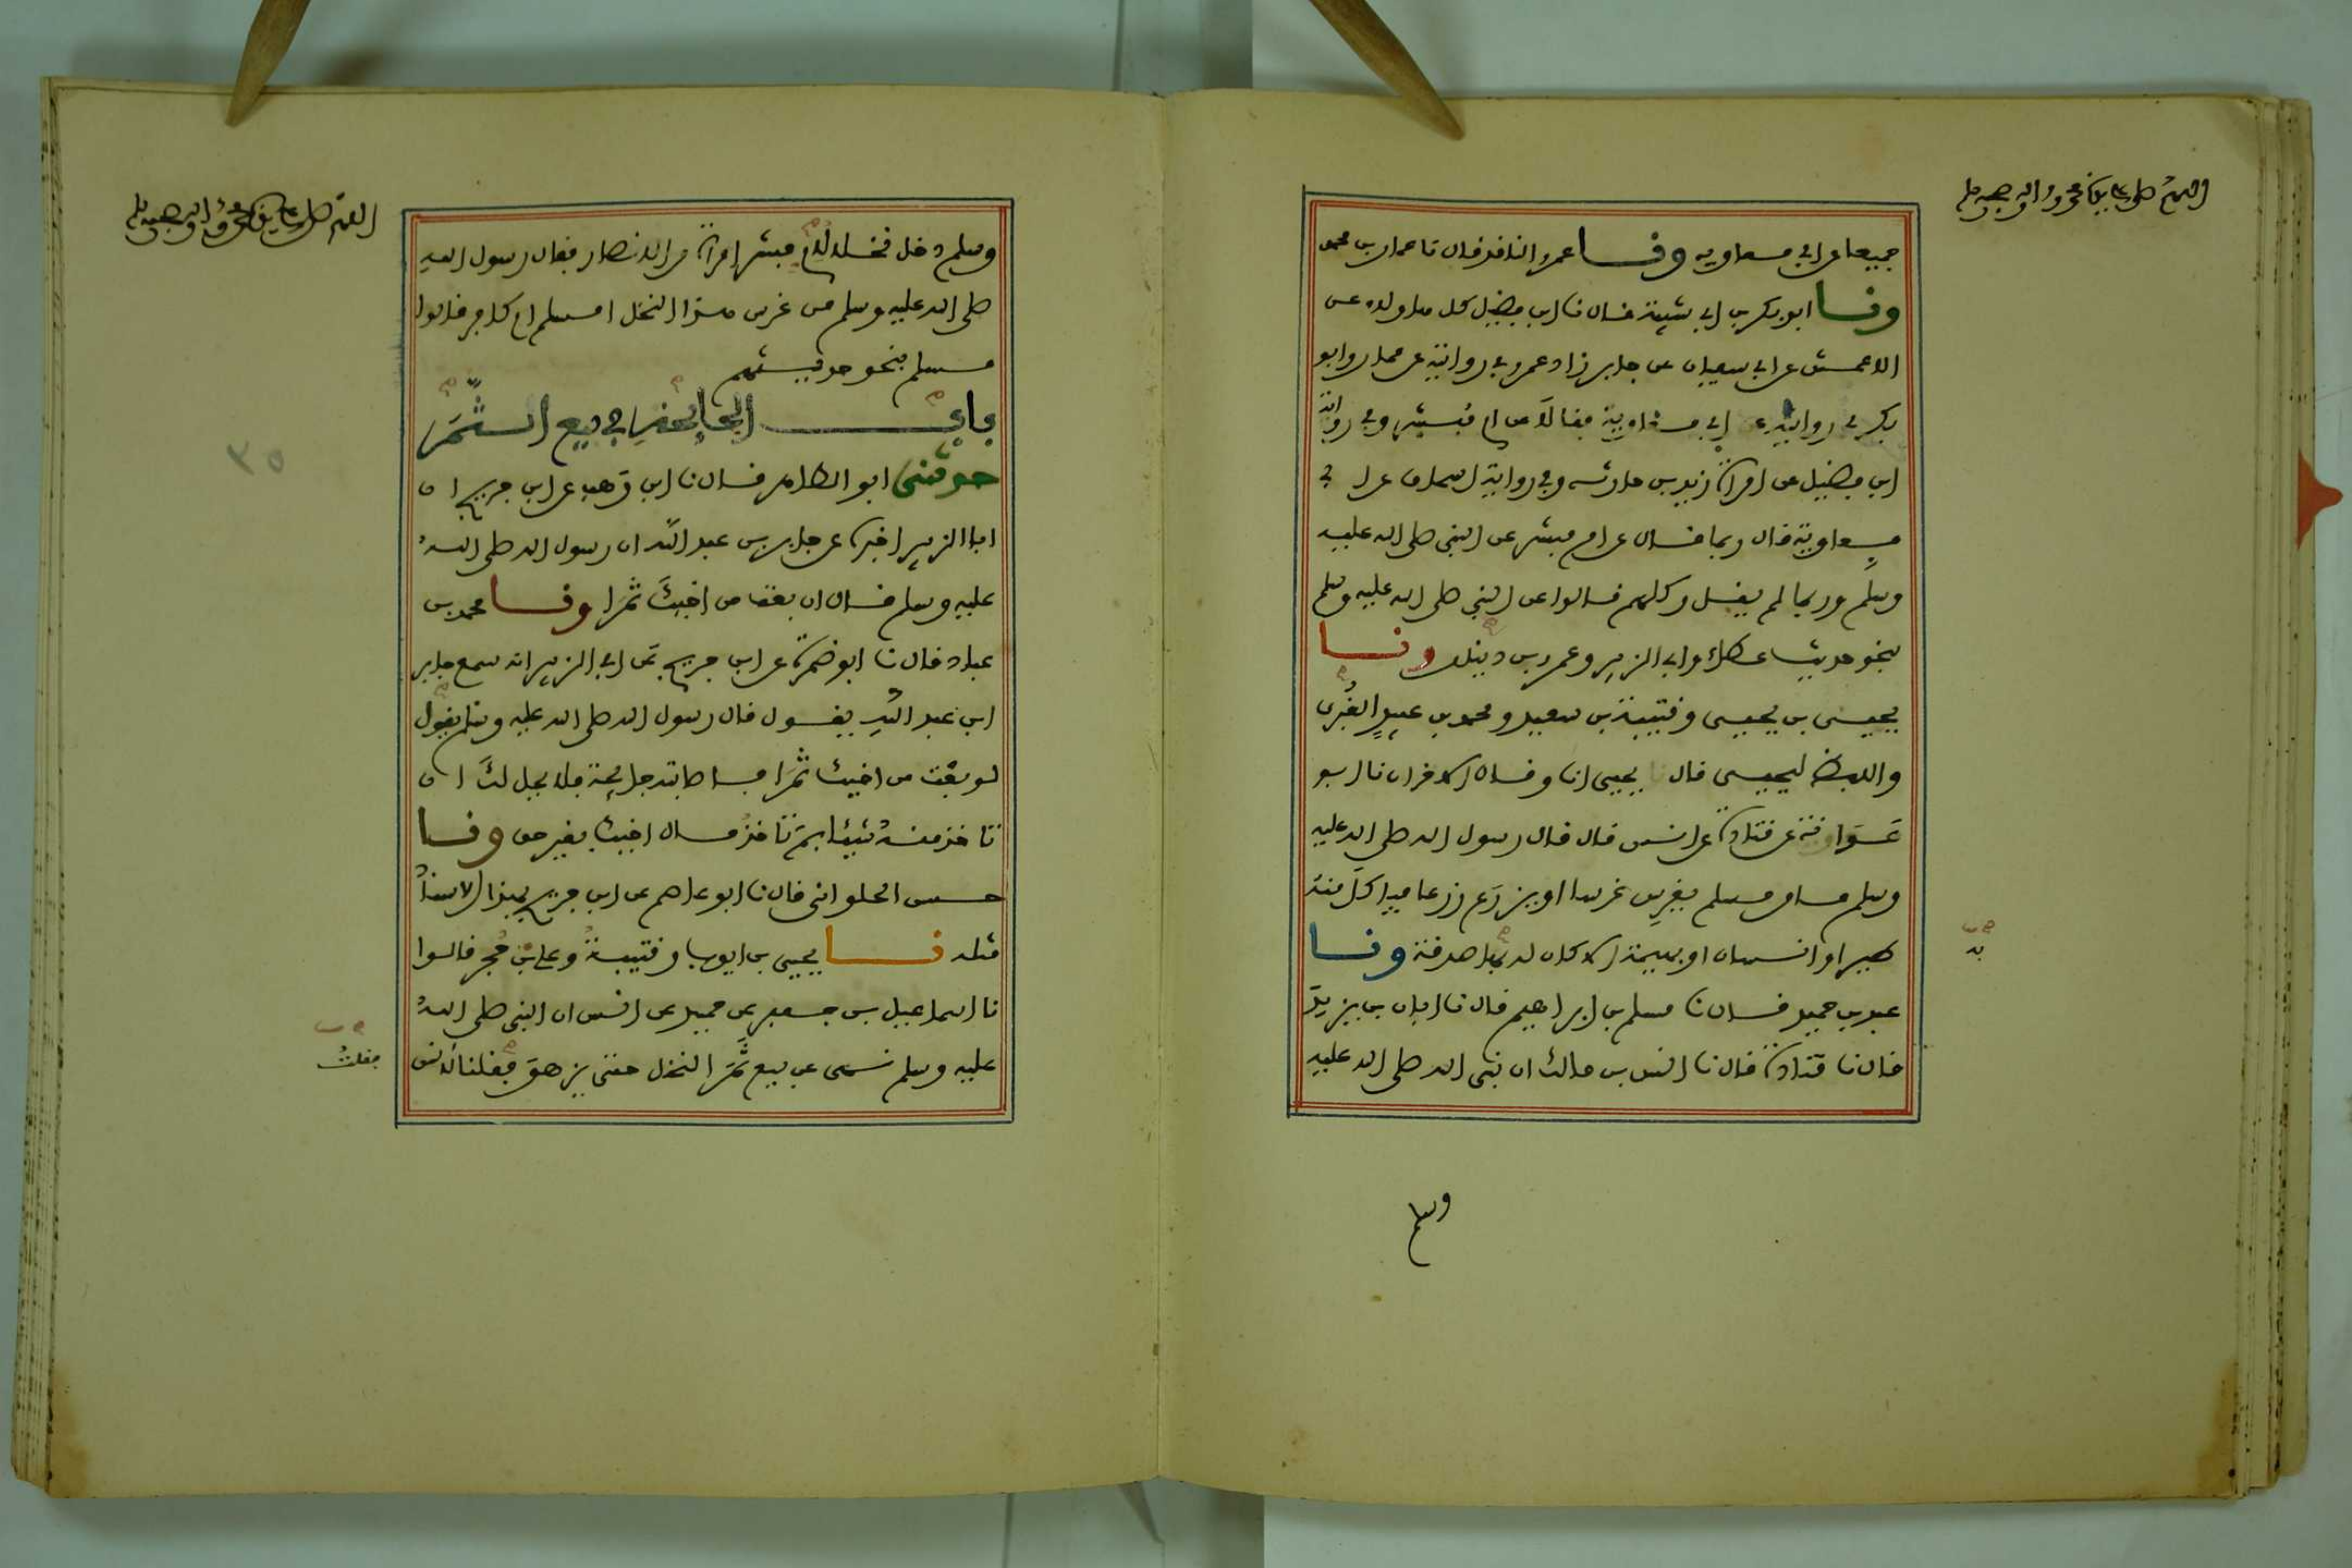 اللهم صل على سيدنا محمد وآله وصحبه وسلم
جميعا عن ابي معاوية ونا عمرو الناقد قال نا عمار بن محمد
ونا ابو بكر بن ابي شيبة قال نا ابن فضيل كل هاولاء عن
الاعمش عن ابي سفيان عن جابر زاد عمرو في روايته عن عمار وابو
بكر في روايته عن ابي معاوية فقالا عن ام مبشر وفي رواية
ابن فضيل عن امراة زيد بن حارثة وفي رواية اسحاق عن ابي
معاوية قال ربما قال عن ام مبشر عن النبي صلى الله عليه
وسلم وربما لم يقل وكلهم قالوا عن النبي صلى الله عليه وسلم
بنحو حديث عطاء وابي الزبير وعمرو بن دينار ونا
يحيى بن يحيى وقتيبة بن سعيد ومحمد بن عبيد الغبري
واللفظ ليحيى قال يحيى انا وقال الاخران نا ابو
عوانة عن قتادة عن انس قال قال رسول الله صلى الله عليه
وسلم ما من مسلم يغرس غرسا او يزرع زرعا فياكل منه
طير او انسان او بهيمة الا كان له بها صدقة ونا
به
عبد بن حميد قال نا مسلم بن ابراهيم قال نا ابان بن يزيد
قال نا قتادة قال نا انس بن مالك ان نبي الله صلى الله عليه
وسلم
اللهم صل على سيدنا محمد وآله وصحبه وسلم
وسلم دخل نخلا لام مبشر امراة من الانصار فقال رسول الله
صلى الله عليه وسلم من غرس هذا النخل امسلم ام كافر قالوا
مسلم بنحو حديثهم
باب الجايحة في بيع الثمر
٣٥
حدثني ابو الطاهر قال نا ابن وهب عن ابن جريج ان
ابا الزبير اخبره عن جابر بن عبد الله ان رسول الله صلى الله
عليه وسلم قال ان بعت من اخيك ثمرا ونا محمد بن
عباد قال نا ابو ضمرة عن ابن جريج عن ابي الزبير انه سمع جابر
ابن عبد الله يقول قال رسول الله صلى الله عليه وسلم يقول
لو بعت من اخيك ثمرا فاصابته جايحة فلا يحل لك ان
تاخذ منه شيئا بم تاخذ مال اخيك بغير حق ونا
حسن الحلواني قال نا ابو عاصم عن ابن جريج بهذا الاسناد
مثله نا يحيى بن ايوب وقتيبة وعلي بن حجر قالوا
نا اسماعيل بن جعفر عن حميد عن انس ان النبي صلى الله
عليه وسلم نهى عن بيع ثمر النخل حتى يزهو فقلنا لانس
فقلت